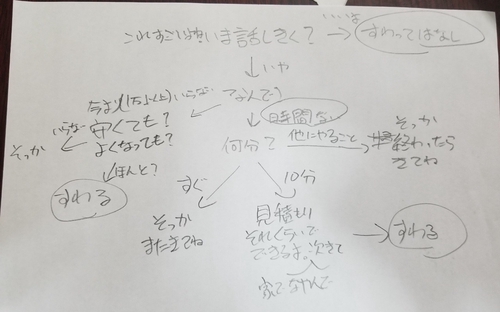 これすごいよ いま話しきく? → いいよ すわってはなし
↓いや
なんで?
いらない
今より(1万よく上)
安くても?
よくなっても?
いらない
そっか
↓ほんと?
すわる
時間な
何分?
他にやること
そっか
終わったら
きてね
すぐ
そっか
またきてね
10分
見積もり
それくらいで
できるよ 次きて
家でなやんで
すわる